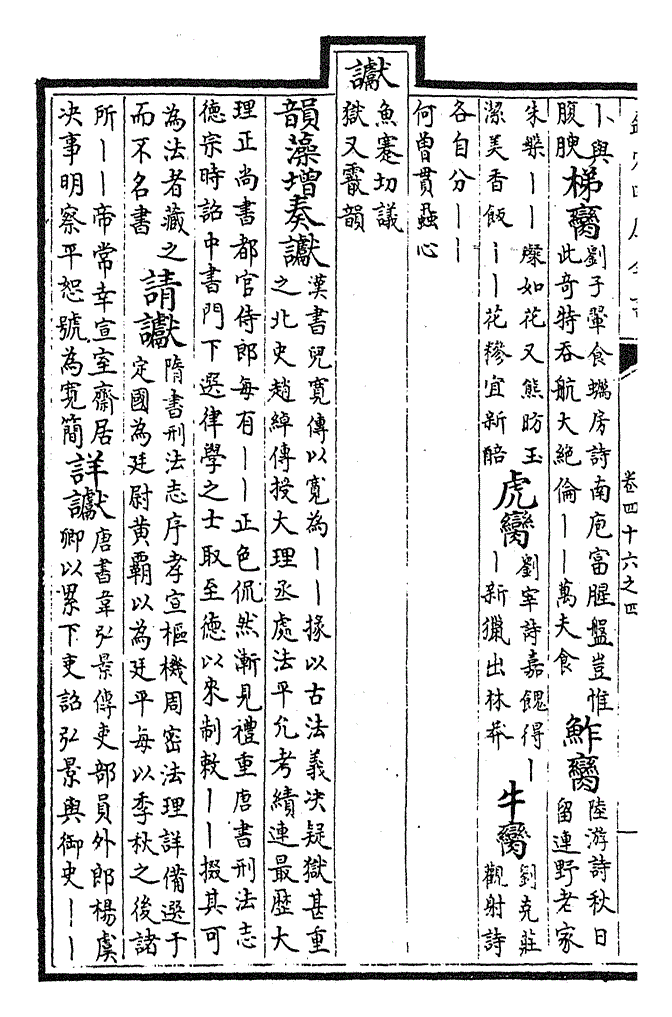 欽定四庫全書
卷四十六之四
一
丨與
腹腴
梯臠
劉子翬食蠣房詩南庖富腥盤豈惟
此奇特吞航大絶倫丨丨萬夫食
鮓臠
陸游詩秋日
留連野老家
朱槃丨丨燦如花又熊肪玉
潔美香飯丨丨花糝宜新醅
虎臠
劉宰詩嘉餽得丨
丨新獵出林莽
牛臠
劉克莊
觀射詩
各自分丨丨
何曾貫蝨心
讞
魚蹇切議
獄又霰韻
韻藻增奏讞
漢書兒寬傳以寬為丨丨掾以古法義决疑獄甚重
之北史趙綽傳授大理丞處法平允考績連最歷大
理正尚書都官侍郎每有丨丨正色侃然漸見禮重唐書刑法志
德宗時詔中書門下選律學之士取至德以來制敕丨丨掇其可
為法者藏之
而不名書
請讞
隋書刑法志序孝宣樞機周密法理詳備選于
定國為廷尉黄霸以為廷平每以季秋之後諸
所丨丨帝常幸宣室齋居
决事明察平恕號為寛簡
詳讞
唐書韋弘景傳吏部員外郎楊虞
卿以累下吏詔弘景與御史丨丨